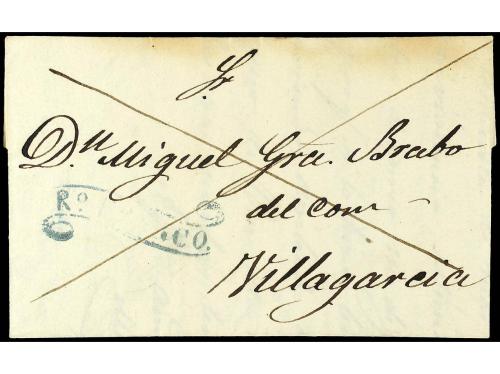 Sr
Dn Miguel Gra. Brabo
del Com
Villagarcia
Ro
CO.